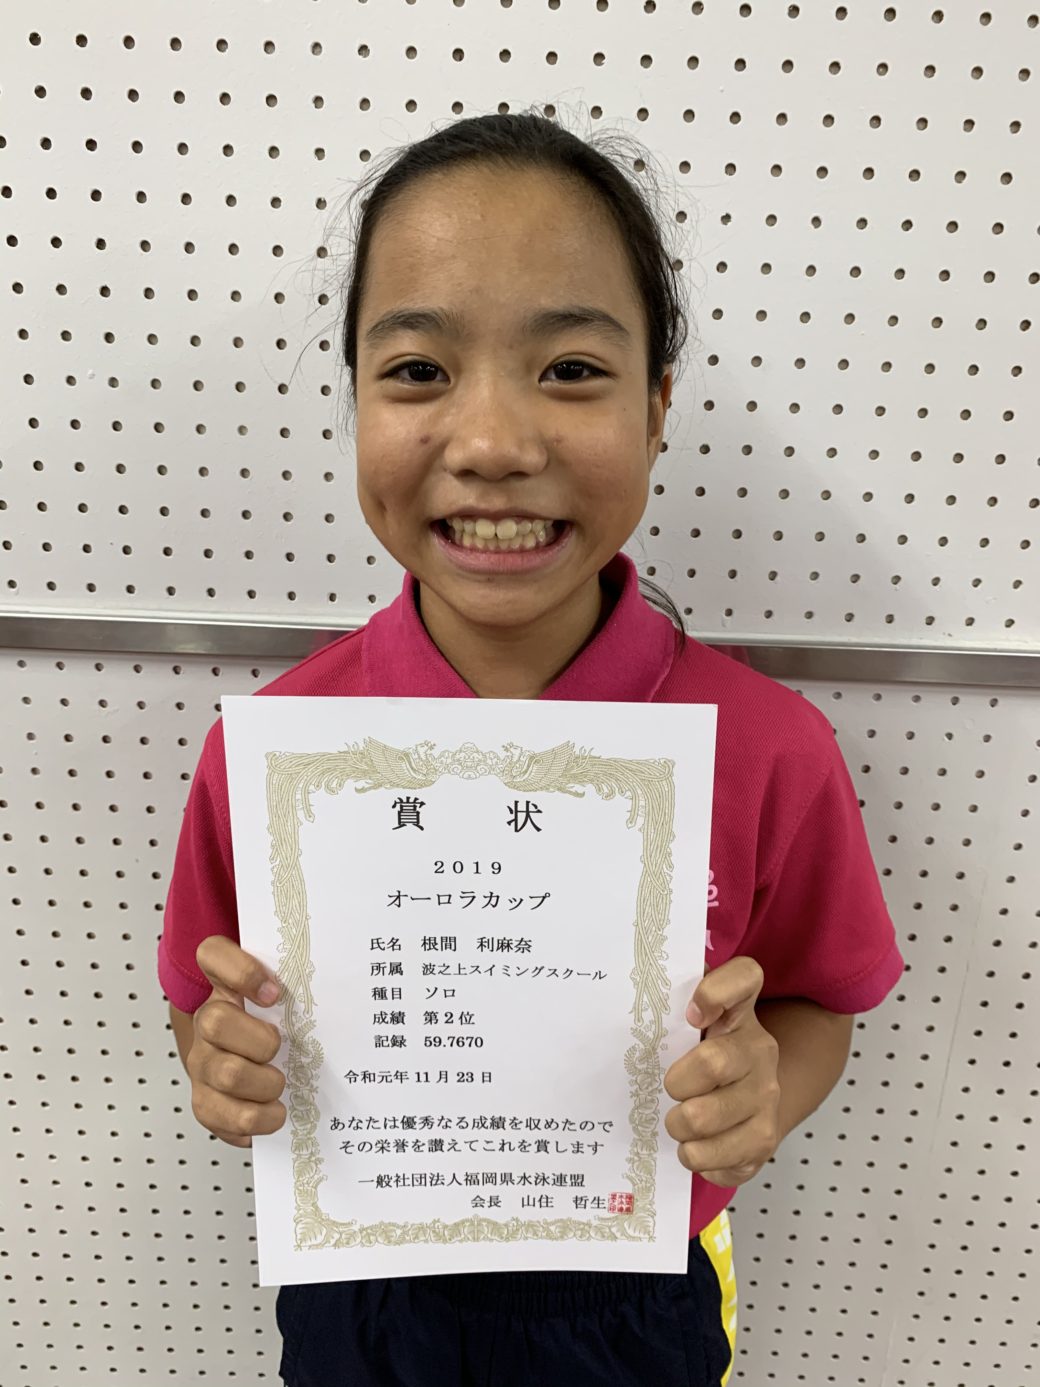 賞 状
2019
オーロラカップ
氏名 根間 利麻奈
所属 波之上スイミングスクール
種目 ソロ
成績 第2位
記録 59.7670
令和元年 11月 23日
あなたは優秀なる成績を収めたので
その栄誉を讃えてこれを賞します
一般社団法人福岡県水泳連盟
会長 山住 哲生